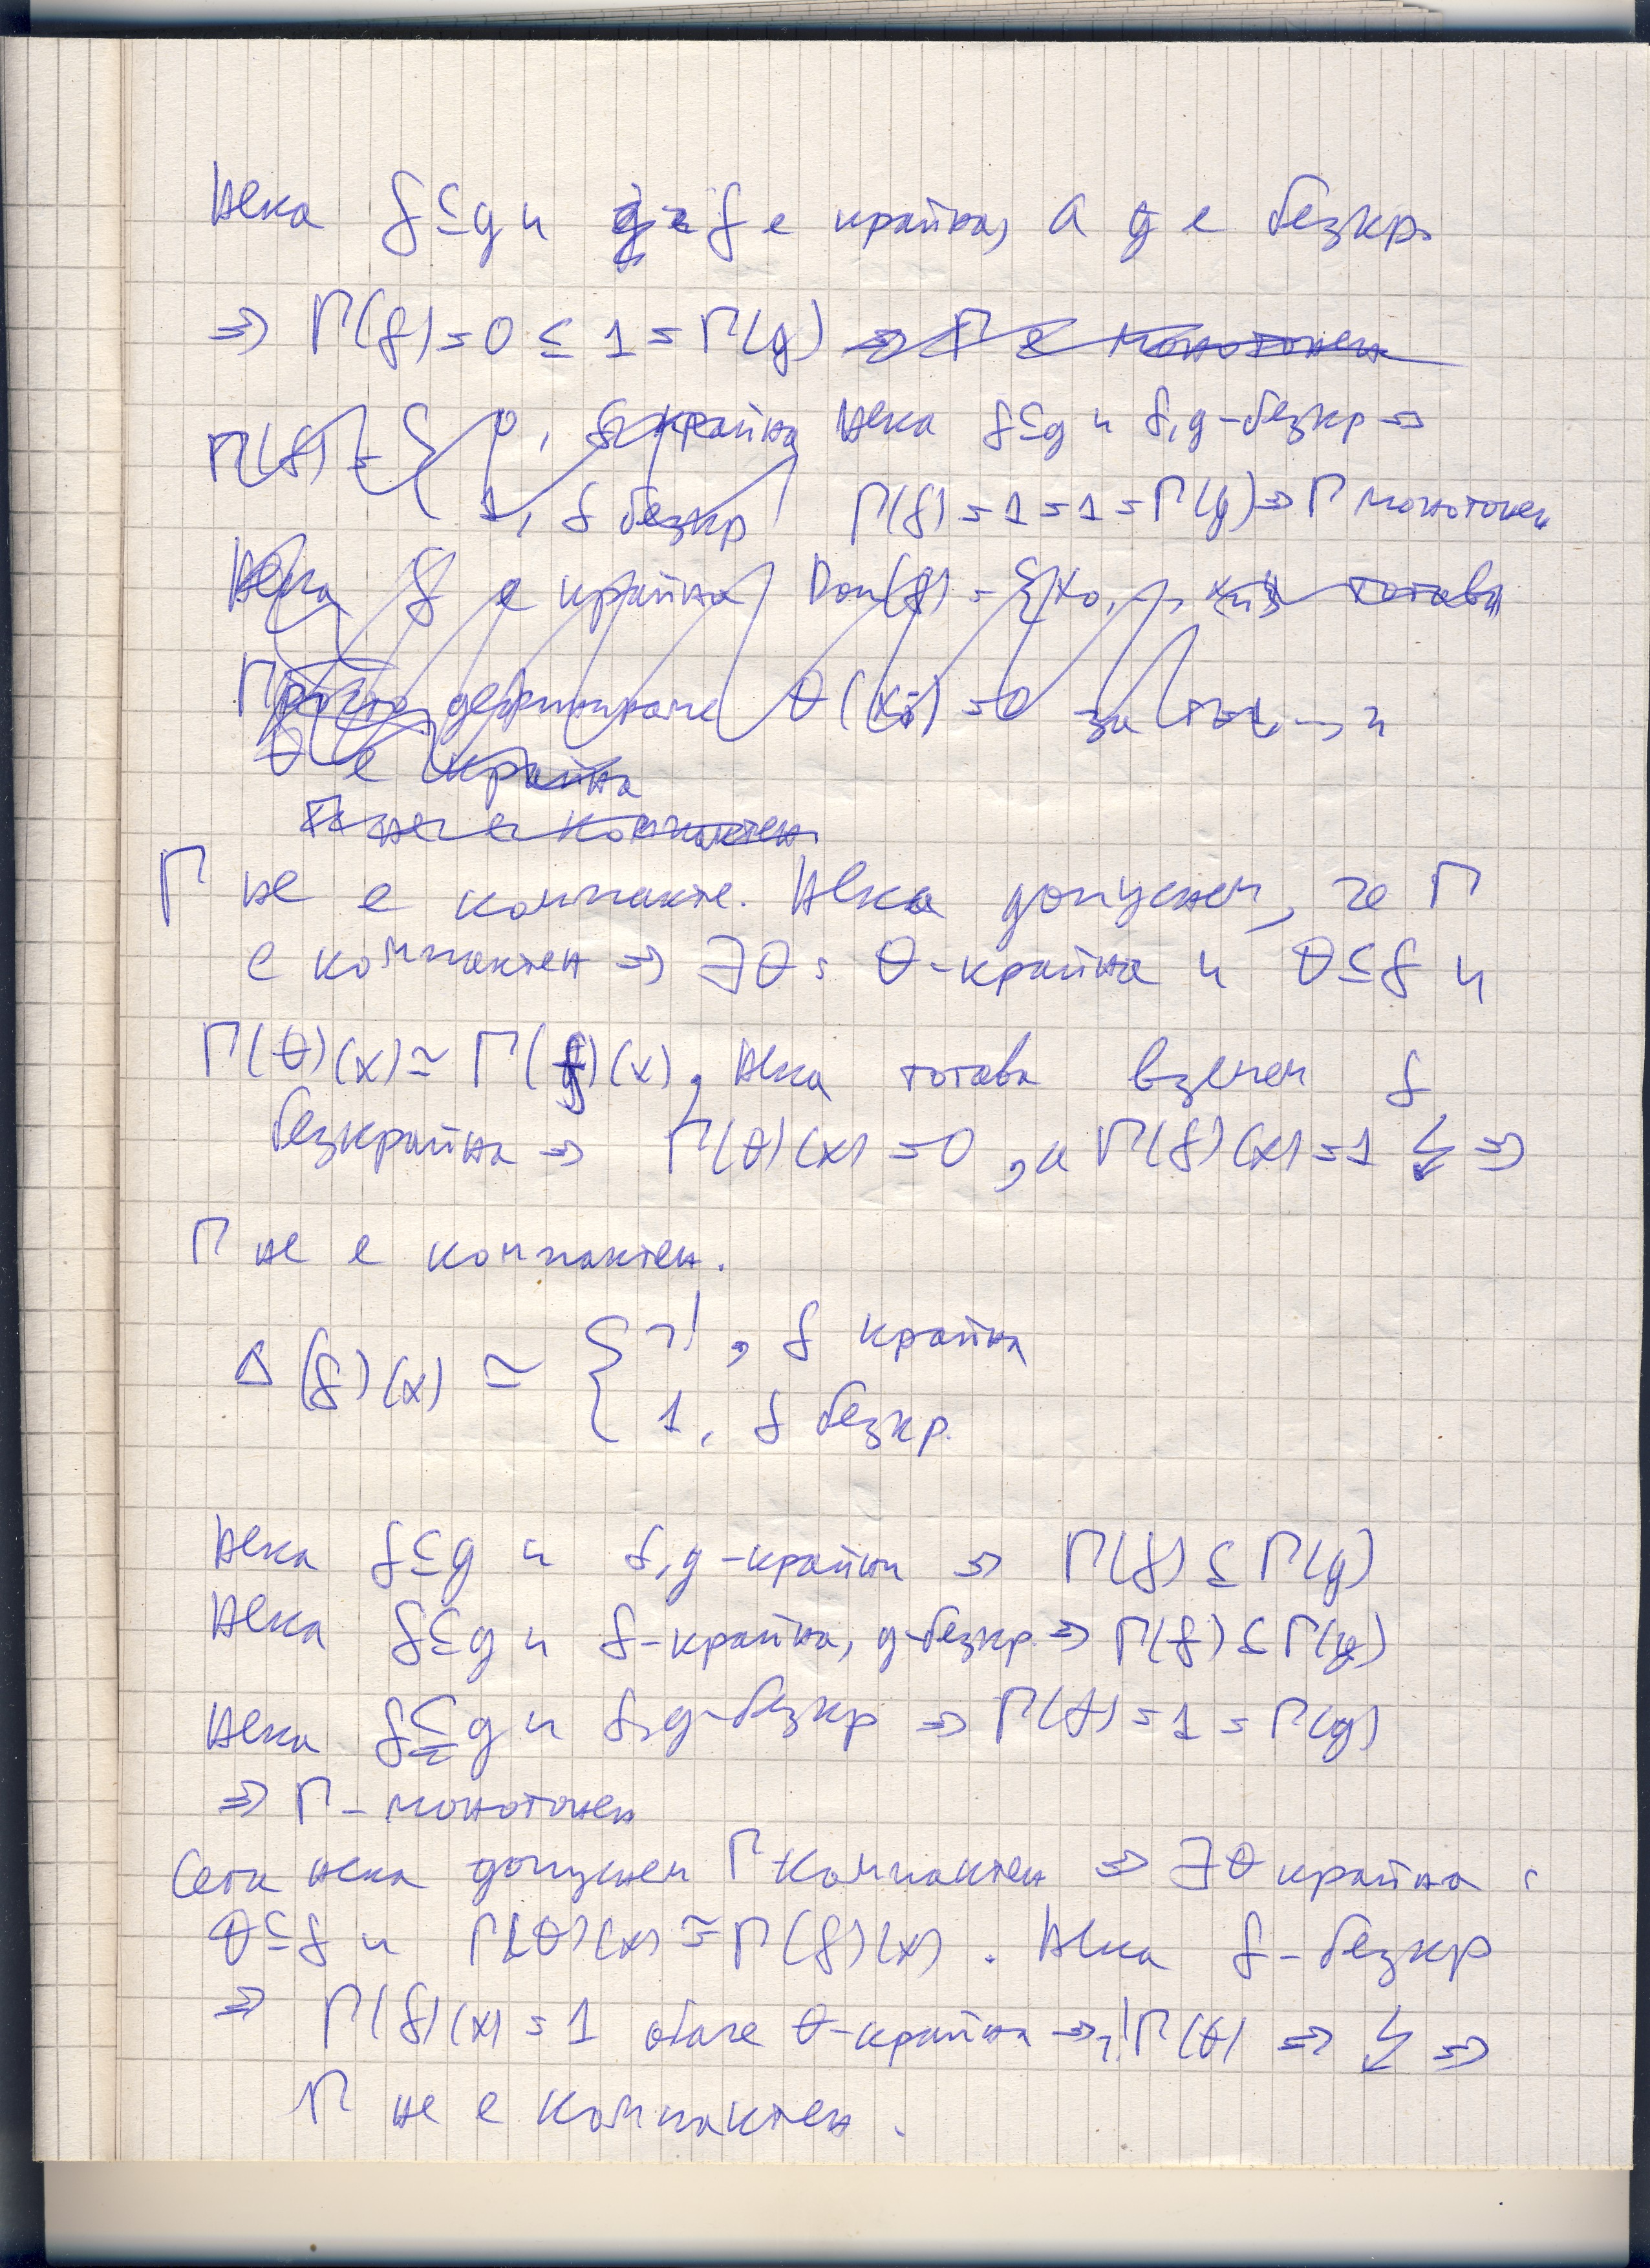 Нека f ⊆ g и f е крайна, а g е безкр.
⇒ Γ(f) = 0 ≤ 1 = Γ(g) ⇒ Γ е монотонен
Γ(f) = { 0, f крайна Нека f ⊆ g и f, g - безкр ⇒
1, f безкр Γ(f) = 1 = 1 = Γ(g) ⇒ Γ монотонен
Нека f е крайна Dom(f) = {x₀, ..., xₙ} тогава
дефинираме θ(xᵢ) = 0 за
θ е крайна
Γ не е компактен.
Γ не е компакте. Нека допуснем, че Γ
е компактен ⇒ ∃θ: θ - крайна и θ ⊆ f и
Γ(θ)(x) ≃ Γ(f)(x), Нека тогава вземем f
безкрайна ⇒ Γ(θ)(x) = 0, а Γ(f)(x) = 1 ↯ ⇒
Γ не е компактен.
Δ(f)(x) ≃ { ¬!, f крайна
1, f безкр.
Нека f ⊆ g и f, g - крайни ⇒ Γ(f) ⊆ Γ(g)
Нека f ⊆ g и f - крайна, g - безкр. ⇒ Γ(f) ⊆ Γ(g)
Нека f ⊆ g и f, g - безкр ⇒ Γ(f) = 1 = Γ(g)
⇒ Γ - монотонен
Сега нека допуснем Γ компактен ⇒ ∃θ крайна :
θ ⊆ f и Γ(θ)(x) ≃ Γ(f)(x). Нека f - безкр
⇒ Γ(f)(x) = 1 обаче θ - крайна ⇒ ¬!Γ(θ) ⇒ ↯ ⇒
Γ не е компактен.